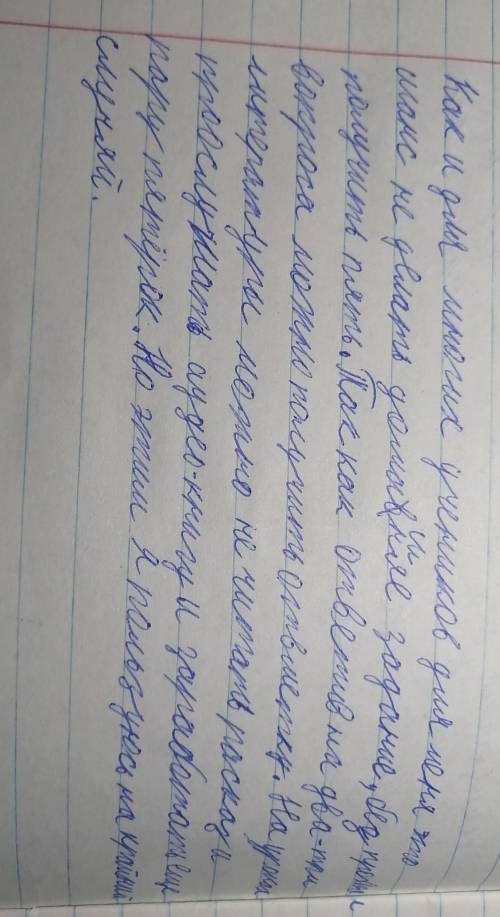 Как и для многих учеников для меня это
шанс не делать домашнее задание, и
получить пять. Так как ответив на два-три
вопроса можно получить отметку. На уроки
литературы можно не читать расказ и
прослушать аудео-книгу и заработать еще
пару пятёрок. Но этим я пользуюсь на крайний
случяй.